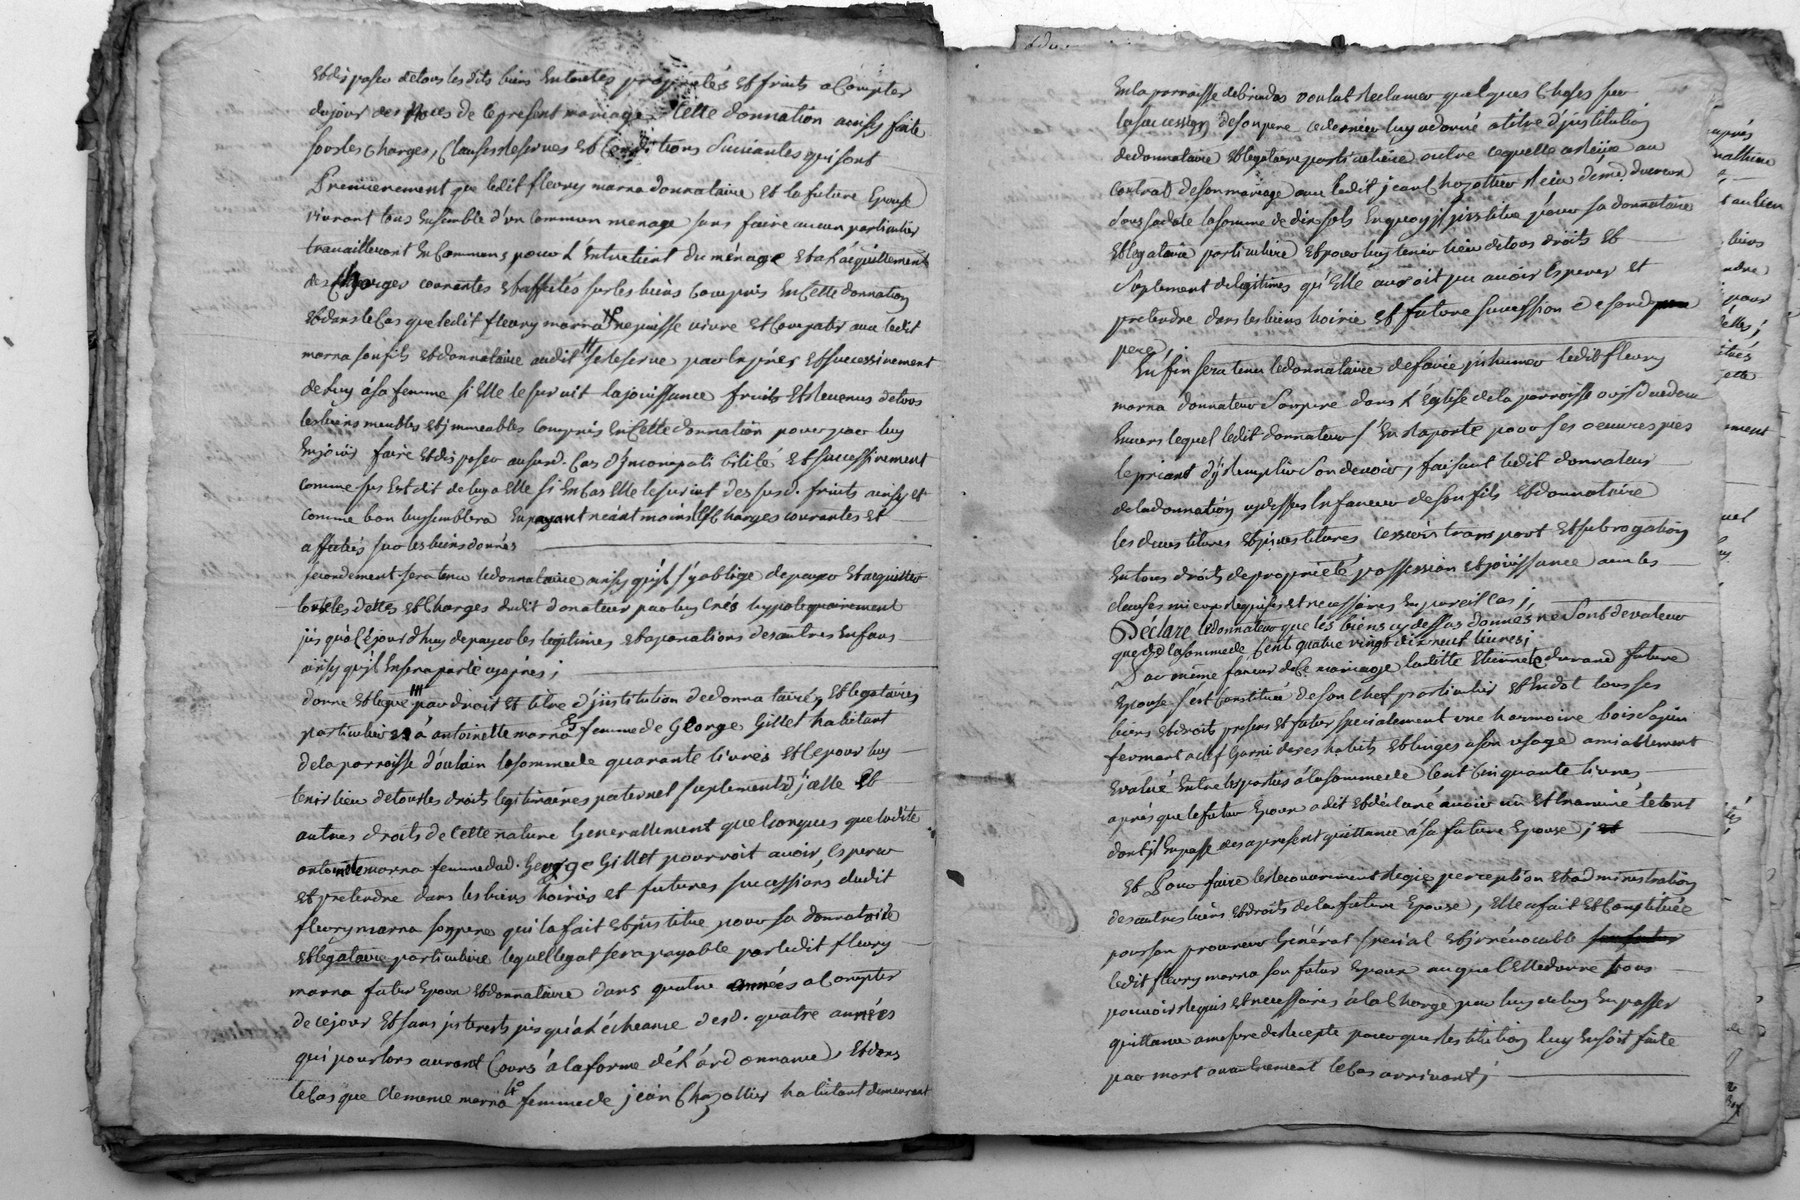 Et disposer de tous les dits biens En toutes proprietés et fruits a Compter
du jour des noces de le present mariage Cette donnation ainsy faite
sous les Charges, Clauses reserves et Conditions Suivantes qui sont
Premierement que ledit fleury marna donnataire et la future Epouse
vivront tous Ensemble d'un Commun menage sans faire aucun particulier
travailleront En Commun pour l'Entretient du ménage et a l'acquittement
des Charges courantes et affectés sur les biens Compris En Cette donnation
Et dans le Cas que ledit fleury marna ne puisse vivre et Compatir avec ledit
marna son fils et donnataire audit se reserve par Exprés et successivement
de luy á sa femme si Elle le survit la jouissance fruits et revenus de tous
les biens meubles et jmmeubles Compris En Cette donnation pour par luy
En joüir faire et disposer au susd. Cas d'Incompatibilité et successivement
comme sus est dit de luy a Elle si En Cas Elle le survit des susd. fruits ainsy et
comme bon leur semblera En payant neantmoins les Charges courantes et
affectés sur les biens donnés
secondement sera tenu le donnataire ainsy qu'jl s'y oblige de payer et acquitter
toutes les dettes et Charges dudit donateur par luy Créés hypotequairement
jusqu'a Ce jour d'huy de payer les legitimes et apanations des autres Enfans
ainsy qu'jl En sera parlé cy aprés ;
donne et legue par droit et titre d'justitution de donnataires et legataires
particuliers a antoinette marna femme de George Gillet habitant
de la parroisse d'oulain la somme de quarante livres et Ce pour luy
tenir lieu de tous les droits legitimaires paternel suplement d'jcelle et
autres droits de Cette nature Generallement quelconques que ladite
antoinette marna femme dud. George Gillet pourroit avoir, Esperer
et pretendre dans les biens hoiries et futures sucessions dudit
fleury marna son pere qui la fait et justitue pour sa donnataire
et legataire particuliere lequel legat sera payable par ledit fleury
marna futur Epoux et donnataire dans quatre années a Compter
de ce jour et sans jnterests jusqu'a l'écheance desd. quatre années
qui pour lors auront Cours á la forme de l'ordonnance, et dans
le Cas que Clemence marna femme de jean Chazottier habitant demeurant
En la parroisse de brindas voulut reclamer quelques Choses sur
la succession de son pere ce dernier luy a donné a titre d'justitution
de donnataire et legataire particuliere outre ce quelle a reçüe au
contrat de son mariage avec ledit jean Chozottier
la somme de dix sols En quoy jl justitue pour sa donnataire
et legataire particuliere et pour luy tenir lieu de tous droits et
Suplement de legitimes qu'Elle auroit pu avoir Esperer et
pretendre dans les biens hoirie et future sucession de sond
pere
En fin sera tenu le donnataire de faire jnhumer ledit fleury
marna donnateur Son pere dans l'Eglise de la parroisse
Envers lequel ledit donnateur s'En raporte pour ses oeuvres pies
le priant d'y remplir Son devoir, faisant ledit donnateur
de la donnation cy dessus En faveur de son fils et donnataire
les devestitures et jnvestitures cession transport et subrogation
En tous droits de proprieté possession et joüissance avec les
clauses mieux requises et necessaires En pareil cas ;
Déclare le donnateur que les biens cy dessus donnés ne Sont de valeur
que de la somme de Cent quatre vingt dix neuf livres ;
Par même faveur de Ce mariage ladite Etiennette durand future
Epouse s'est Constituée de son Chef particulier et En dot tous ses
biens et droit presens et futur specialement une harmoire bois sapin
fermant a clef Garni de ses habits et linges a son usage amiablement
Evalué Entre les parties á la somme de Cent Cinquante livres
aprés que le futur Epoux a dit et déclaré avoir vû et Examiné le tout
dont jl En passe des a present quittance á sa future Epouse ;
Et Pour faire le recouvrement regie perception et administration
des autres biens et droits de la future Epouse, Elle a fait et Constituée
pour son procureur Général special et jrrévocable
ledit fleury marna son futur Epoux auquel Elle donne tous
pouvoir requis et necessaires á la Charge par luy de luy En passer
quittance a mesure de recepte pour que restitution luy En soit faite
par mort ou autrement le Cas arrivant ;